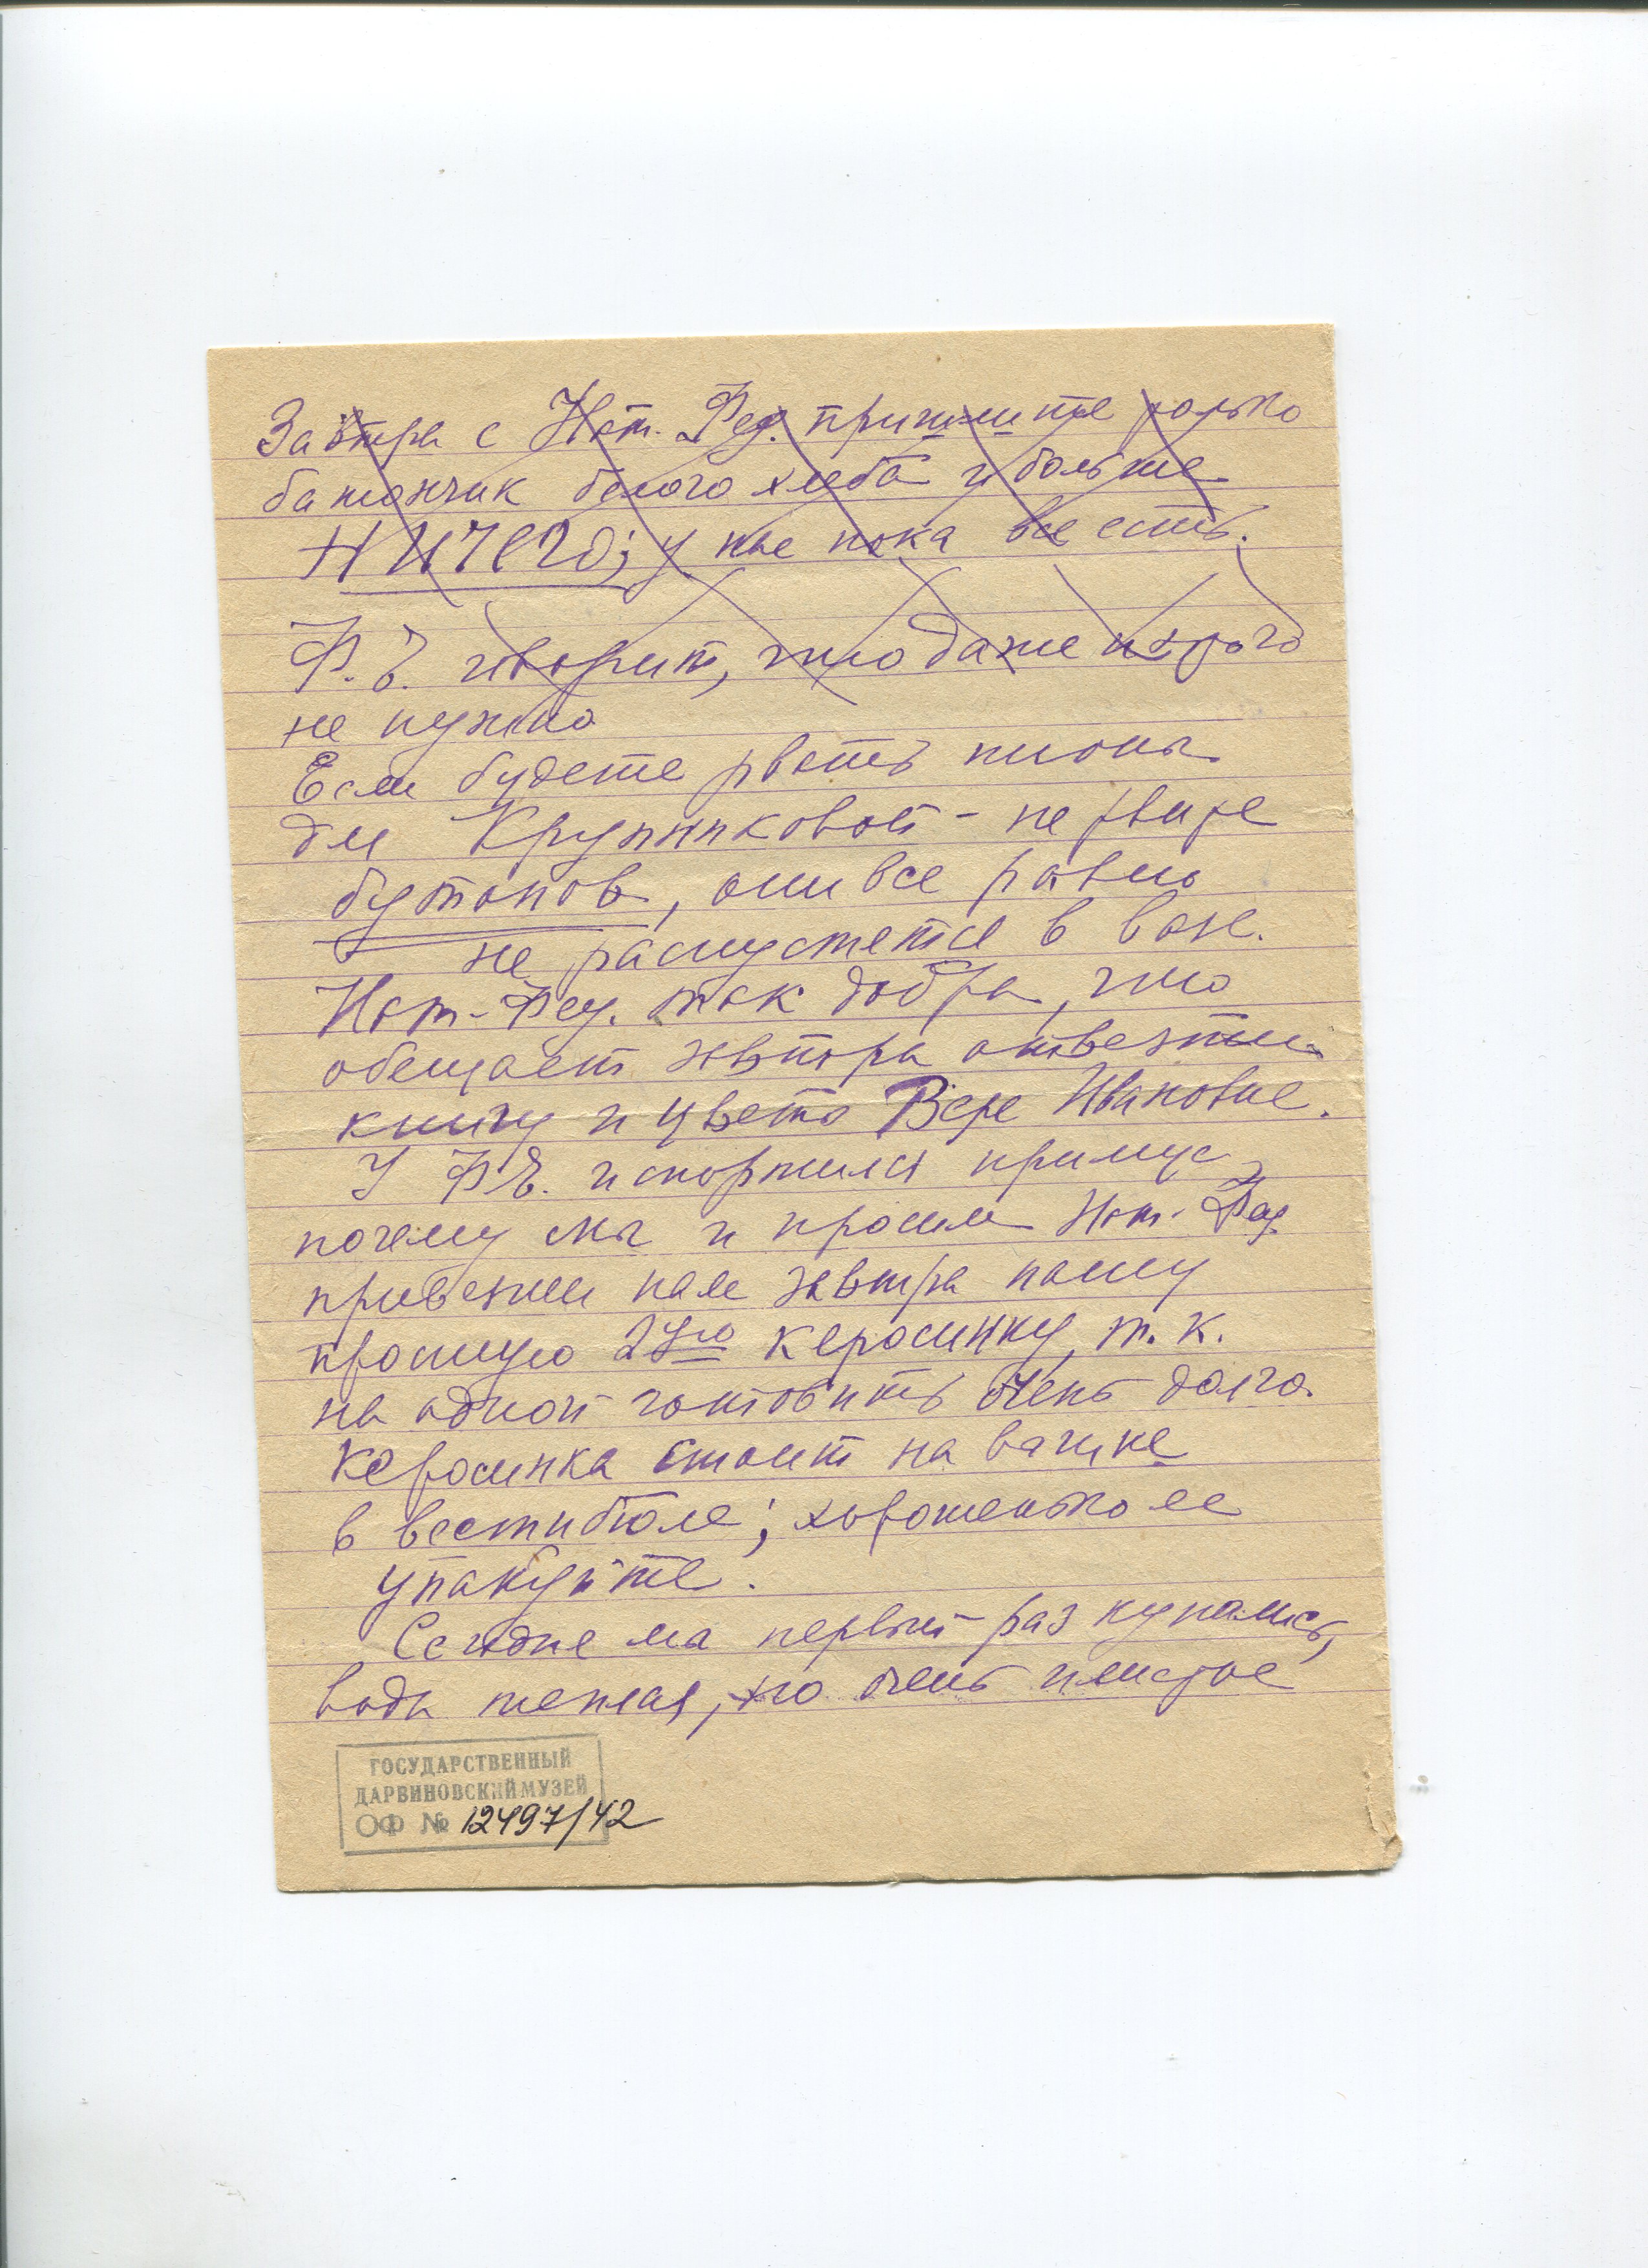 Завтра с Нат. Фед. пришлите только
батончик белого хлеба и больше
НИЧЕГО; у нас пока все есть.
Ф. Е. говорит, что даже и этого
не нужно
Если будете рвать пионы
для Крупниковой - не рвите
бутонов, они все равно
не распустятся в вазе.
Нат-Фед. так добра, что
обещает завтра отвезти
книгу и цветы Вере Ивановне.
У Ф Е. испортился примус
почему мы и просим Нат. Фед.
привезти нам завтра нашу
простую 2ую керосинку, т. к.
на одной готовить очень долго.
Керосинка стоит на
в вестибюле; хорошенько ее
упакуйте.
Сегодня мы первый раз купались,
вода теплая, но очень илистое
ГОСУДАРСТВЕННЫЙ
ДАРВИНОВСКИЙ МУЗЕЙ
ОФ № 12497/42